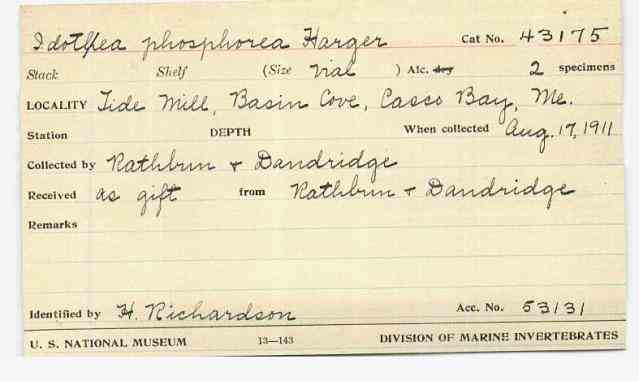 Idothea phosphorea Harger Cat No. 43175
Stack Shelf (Size Vial ) Alc. dry 2 specimens
LOCALITY Tide Mill, Basin Cove, Casco Bay, Me.
Station DEPTH When collected Aug. 17, 1911
Collected by Rathbun + Dandridge
Received as gift from Rathbun + Dandridge
Remarks
Identified by H. Richardson Acc. No. 53131
U. S. NATIONAL MUSEUM 13—143 DIVISION OF MARINE INVERTEBRATES